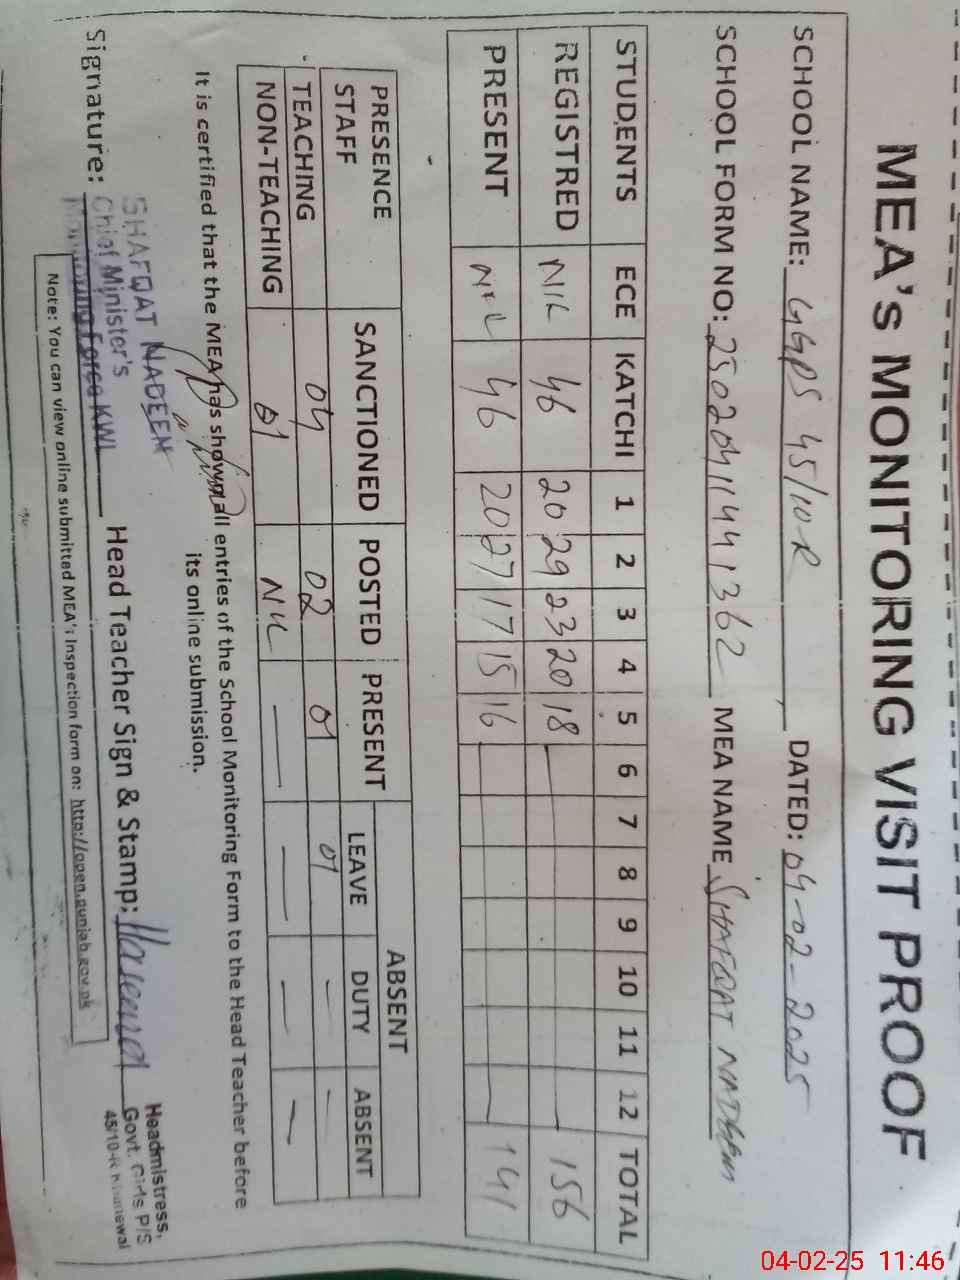 MEA's MONITORING VISIT PROOF
SCHOOL NAME: GGPS 45/10-R, DATED: 04-02-2025
SCHOOL FORM NO: 25020411441362 MEA NAME SHAFQAT NADEEM
STUDENTS ECE KATCHI 1 2 3 4 5 6 7 8 9 10 11 12 TOTAL
REGISTRED NIL 46 20 29 23 20 18 156
PRESENT NIL 46 20 27 17 15 16 141
PRESENCE STAFF SANCTIONED POSTED PRESENT ABSENT
LEAVE DUTY ABSENT
TEACHING 04 02 01 01 — —
NON-TEACHING 01 NIL — — — —
It is certified that the MEA has shown all entries of the School Monitoring Form to the Head Teacher before
its online submission.
SHAFQAT NADEEM
Chief Minister's
Monitoring Force KWL
Signature: Head Teacher Sign & Stamp:
Headmistress,
Govt. Girls P/S
45/10-R Khanewal
Note: You can view online submitted MEA's Inspection form on: http://open.punjab.gov.pk
04-02-25 11:46